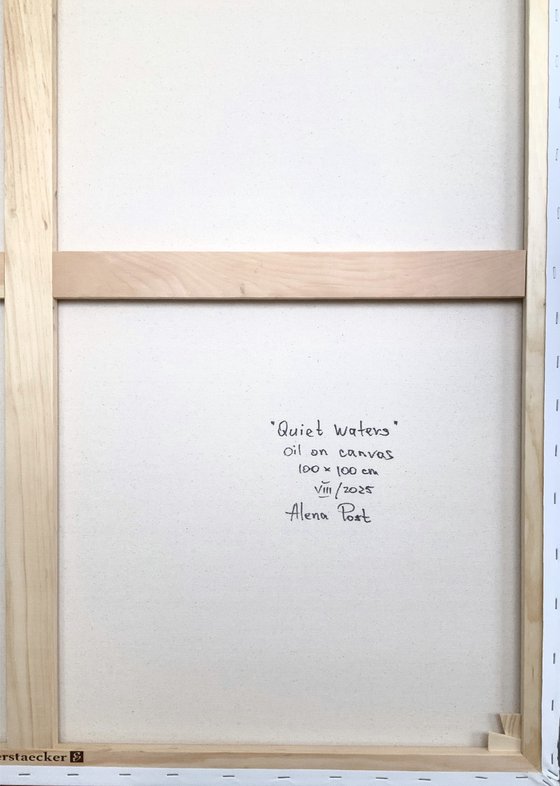 "Quiet Waters"
oil on canvas
100 x 100 cm
VIII/2025
Alena Post
erstaecker